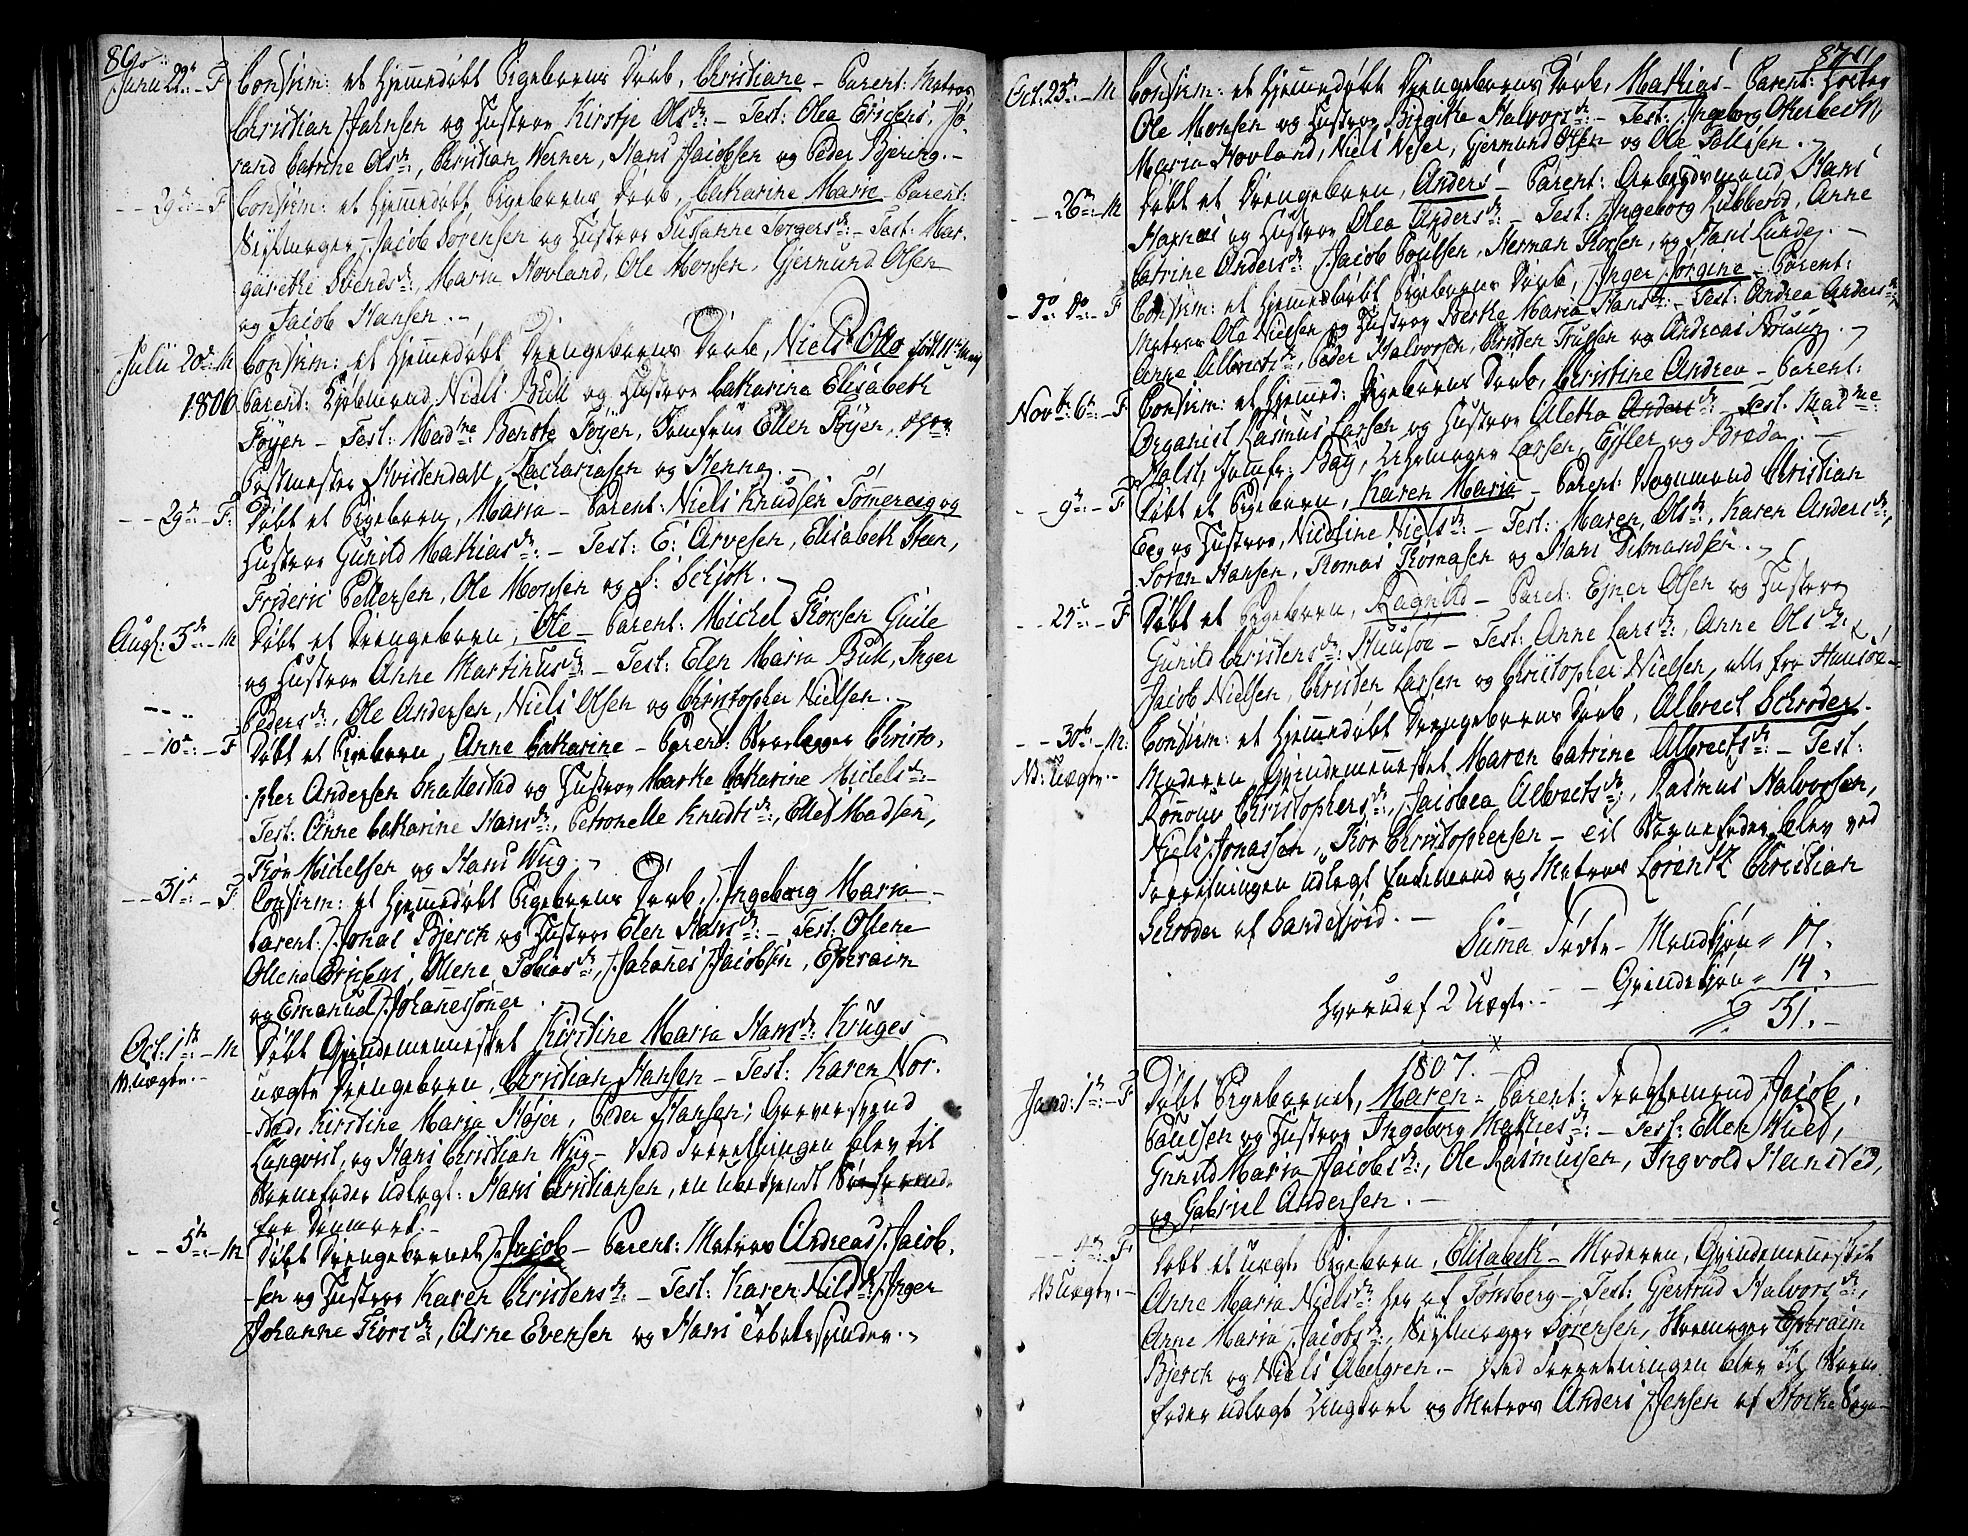 86
Junii 22de: – F. Confirm: et hjemmedøbt Pigebarns Daab, Christiane – Parent: Matros
Christian Jahnsen og Hustrue Kirstje Olsdr: – Test: Olea Ericsens, Jø-
rand Catrine Olsdr:, Christian Werner, Hans Jacobsen og Peder Bjering. –
– – 29de: – F Confirm: et hjemmedøbt Pigebarns Daab, Catharine Marie – Parent:
Seylmager Jacob Sørensen og Hustrue Susanne Torgersdr: – Test: Mar-
garethe Svendsdr:, Maria Hovland, Ole Monsen, Gjermund Olsen
og Jacob Hansen. –
Julii 20de: M Confirm: et hjemmedøbt Drengebarns Daab, Niels Otto født 11te
1806 Parent: Kjøbmand Niels Bull og Hustrue Catharine Elisabeth
Føyen – Test: Madme Benthe Føyen, Jomfrue Ellen Føyen,
Postmester Hvistendall, Zachariasen og Henne. –
– – 29de: – F: Døbt et Pigebarn, Maria – Parent: Niels Knudsen Tømeraas og
Hustrue Gunild Mathiasdr: – Test: E: Arvesen, Elisabeth Steen,
Frideric Pettersen, Ole Monsen og S: Schjøk. –
Augs: 3de – M Døbt et Drengebarn, Ole – Parent: Michel Thorsen Guile
og Hustrue Anne Martinusdr: – Test: Elen Maria Bull, Inger
Pedersdr:, Ole Andersen, Niels Olsen og Christopher Nielsen. –
– – 10de: – F Døbt et Pigebarn, Anne Catharine – Parent: Christo-
pher Andersen Skallestad og Hustrue Marthe Catharine Michelsdr: –
Test: Anne Catharine Hansdr:, Petronelle Knudsdr:, Ellef Madsen,
Thor Michelsen og Hans Wiig. –
– – 31te: – F Confirm: et hjemmedøbt Pigebarns Daab, Ingeborg Maria –
Parent: Jonas Bjerck og Hustrue Elen Hansdr: – Test: Ollene
Ollene Tobiasdr:, Johannes Jacobsen, Ephraim
og Emanuel Johannessøner.
Oct: 1ste: – M Døbt Qvindemennesket Kirstine Maria Hansdr: Kruges
NB. uægte. – uægte Drengebarn, Christian Hansen – Test: Karen Nor-
stad, Kirstine Maria Højer, Peder Hansen, Garversvend
Lunqvist, og Hans Christian Wiig – Ved Forretningen blev til
Barnefader udlagt: Hans Christiansen, en ubekjendt
fra Danmark. –
– – 5te: – M Døbt Drengebarnet, Jacob – Parent: Matros Andreas Jacob-
sen og Hustrue Karen Christensdr: – Test: Karen Nilsdr: Inger
Johanne Thorsdr:, Arne Evensen og Hans
87
Oct. 23de: – M Confirm: et hjemmedøbt Drengebarns Daab, Mathias – Parent:
Ole Monsen og Hustrue Birgithe Halvorsdr: – Test: Ingeborg Otterbech
Maria Hovland, Niels Wesel, Gjermund Olsen og Ole Pallesen. –
– – 26de: M Døbt et Drengebarn, Anders – Parent: Arbeydsmand Hans
Haxnæs og Hustrue Olea Andersdr: – Test: Ingeborg Rubberød, Anne
Catrine Andersdr: Jacob Poulsen, Herman Thorsen, og Hans Lunde. –
– do: do – F Confirm: et hjemmedøbt Pigebarns Daab, Inger Jørgine – Parent:
Matros Ole Nielsen og Hustrue Berthe Maria Hansdr: – Test: Andrea Andersdr:
Anne Albretsdr:, Peder Halvorsen, Christen Trulsen og Andreas –
Novbr: 6te: – F Confirm: et hjemmed: Pigebarns Daab, Christine Andrea – Parent:
Organist Rasmus Larsen og Hustrue Aletha Andersdr: Test. Madme:
Holst, Jomfr: Bay, Larsen, Eisler og Breda. –
– – 9de: – F Døbt et Pigebarn, Karen Maria – Parent: Vognmand Christian
Eeg og Hustrue, Nicoline Nielsdr: – Test: Maren Olsdr:, Karen Andersdr:,
Søren Hansen, Thomas Thomasen og Hans Ditmandsen. –
– – 25de: – F Døbt et Pigebarn, Ragnild – Parent: Ejner Olsen og Hustrue
Gunild Christensdr: Huusøe – Test: Anne Larsdr:, Anne Olsdr:
Jacob Nielsen, Christen Larsen og Christopher Nielsen, alle fra Huusøe –
– – 30te: – M: Confirm: et hjemmedøbt Drengebarns Daab, Albrect Schrøder.
NB: uægte. – Moderen Qvindemennesket Maren Catrine Albrectsdr: – Test:
Rønnoue Christophersdr:, Jacobea Albrectsdr:, Rasmus Halvorsen,
Niels Jonassen, Thor Christophersen – til Barnefader blev ved
Forretningen udlagt Enkemand og Matros Lorentz Christian
Schrøder af Sandefjord. –
Summa Døbte – Mandkjøn = 17.
Qvindekjøn = 14.
hvoraf 2 uægte. – 31. –
1807.
Janu: 1te: – F Døbt Pigebarnet, Maren – Parent: Fragtemand Jacob
Paulsen og Hustrue Ingeborg Mathiesdr: – Test: Ellen Wiel,
Gunild Maria Jacobsdr:, Ole Rasmussen, Ingvold Hansted,
og Gabriel Andersen. –
– – 4de: F. Døbt et uægte Pigebarn, Elisabeth – Moderen, Qvindemennesket
NB uægte. – Anne Maria Nielsdr: her af Tønsberg – Test: Gjertrud Halvorsdr:,
Anne Maria Jacobsdr:, Seylmager Sørensen, Skomager Ephraim
Bjerck og Niels Abelgren. – Ved Forretningen blev til Barne-
fader udlagt Ungkarl og Matros Anders Jensen af Stocke Sogn –